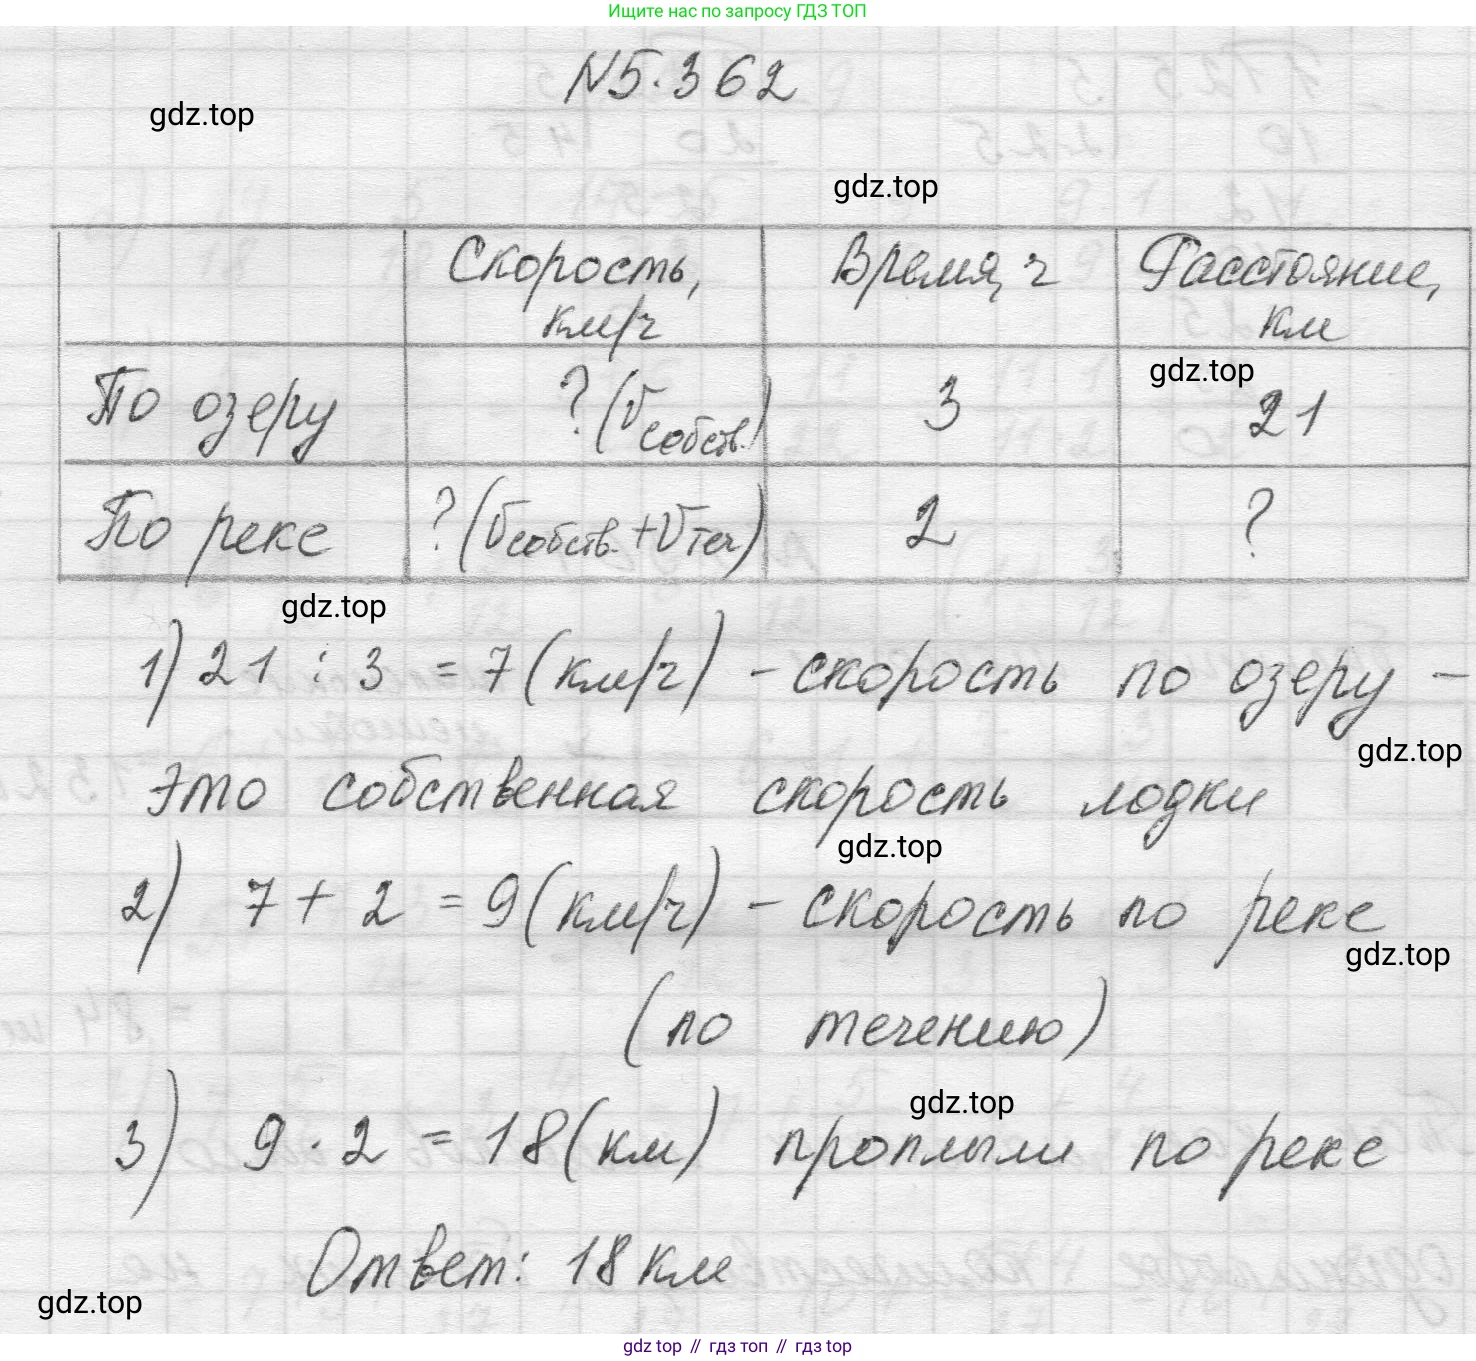 Ищите нас по запросу ГДЗ ТОП
N5.362
gdz.top
gdz.top
Скорость, км/ч
Время, ч
Расстояние, км
gdz.top
По озеру
? (Vсобств.)
3
21
По реке
? (Vсобств. + Vтеч)
2
?
gdz.top
1) 21 : 3 = 7 (км/ч) - скорость по озеру -
gdz.top
это собственная скорость лодки
gdz.top
2) 7 + 2 = 9 (км/ч) - скорость по реке
gdz.top
(по течению)
gdz.top
3) 9 · 2 = 18 (км) проплыли по реке
Ответ: 18 км
gdz.top
gdz.top // гдз топ // гдз.top